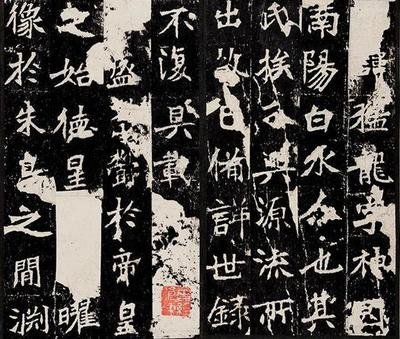 諱猛龍字神囧
南陽白水人也其
氏族分興源流所
出故已備詳世錄
不復具載
盛於帝皇
之始德星曜
像於朱鳥之閒淵